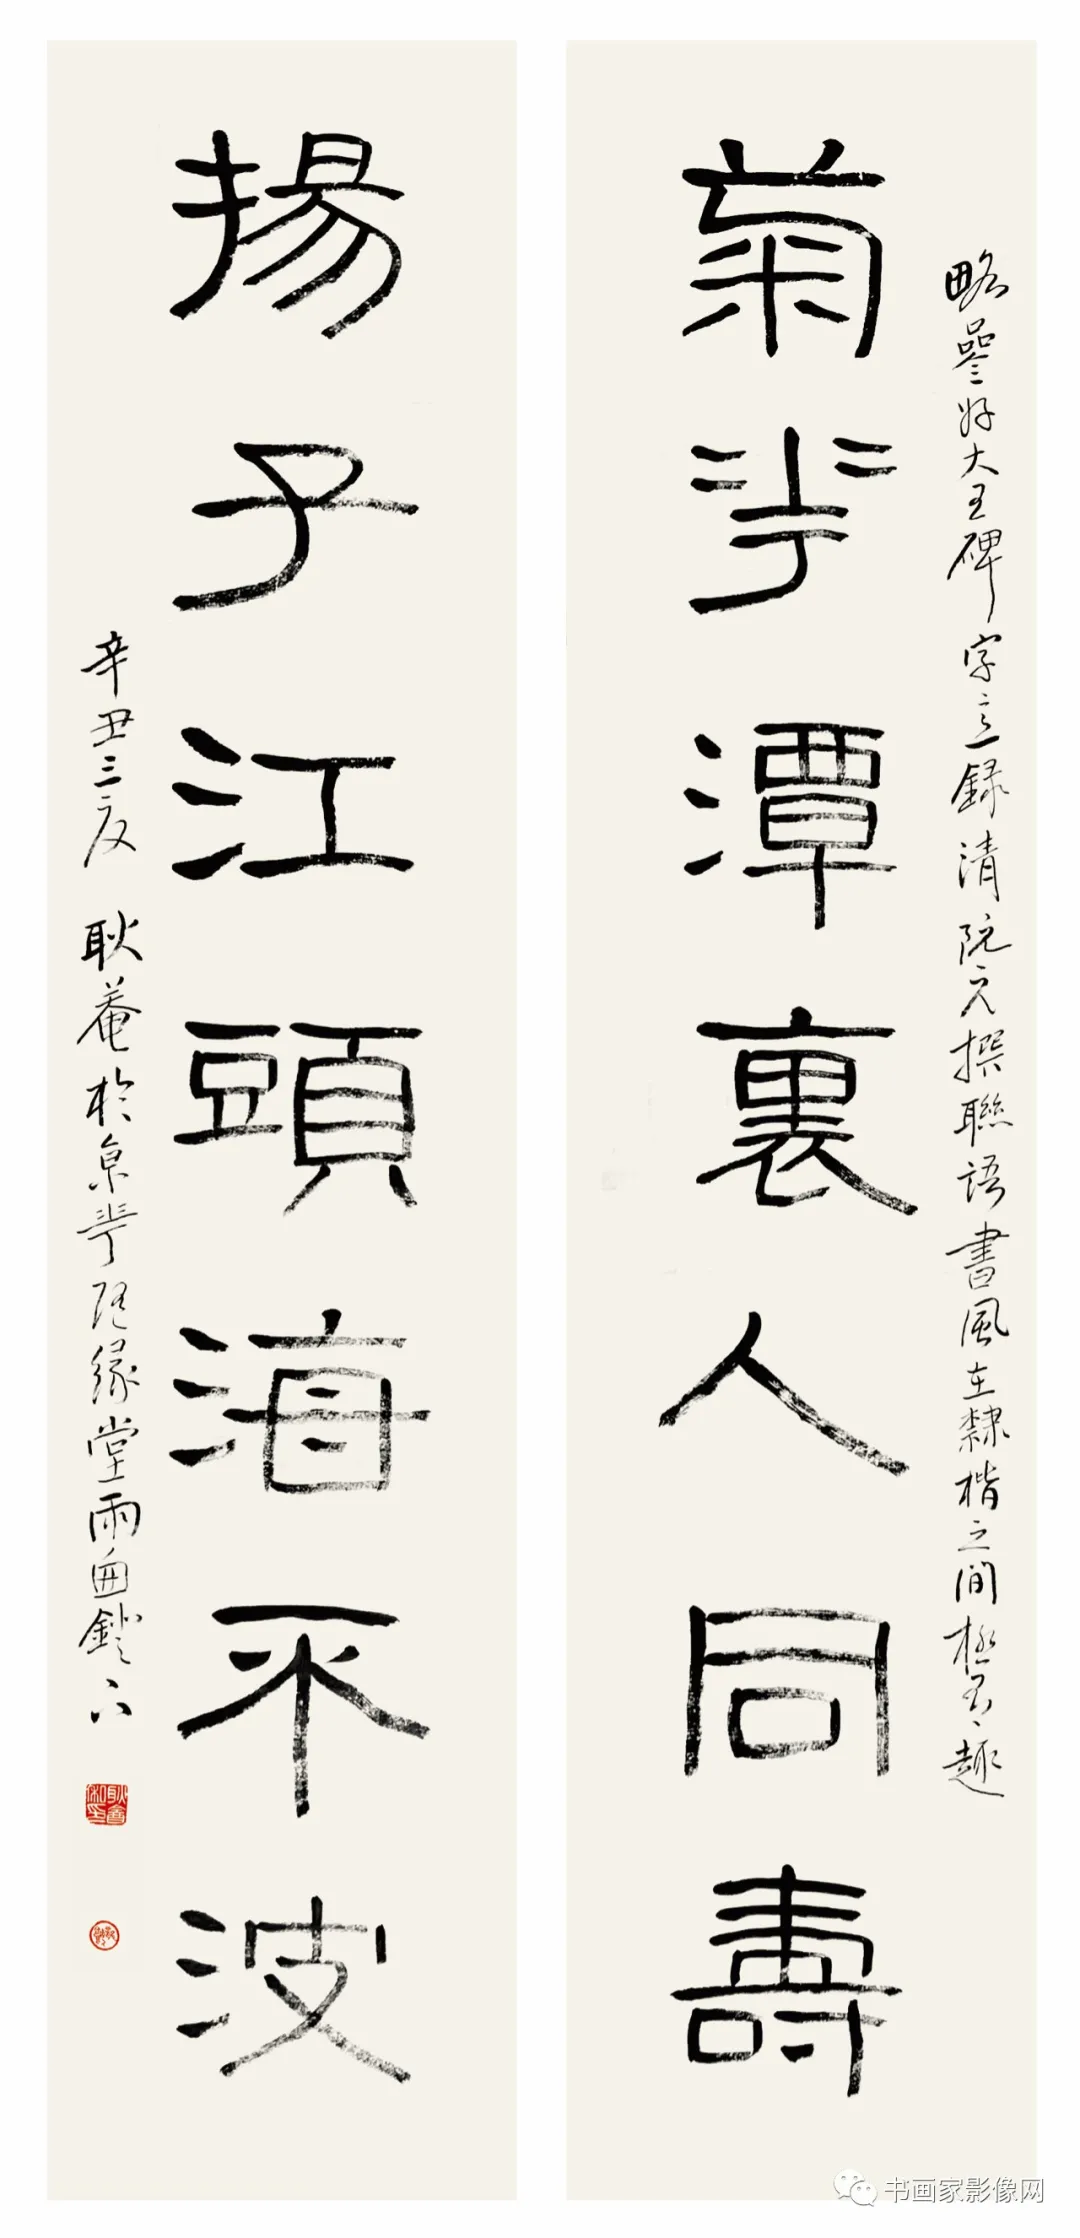 菊花潭裏人同壽
略參好大王碑字意錄清阮元撰聯語書風在隸楷之間極有趣
揚子江頭海不波
辛丑三夏 耿菴於京華 緣堂雨窗鐙下
书画家影像网